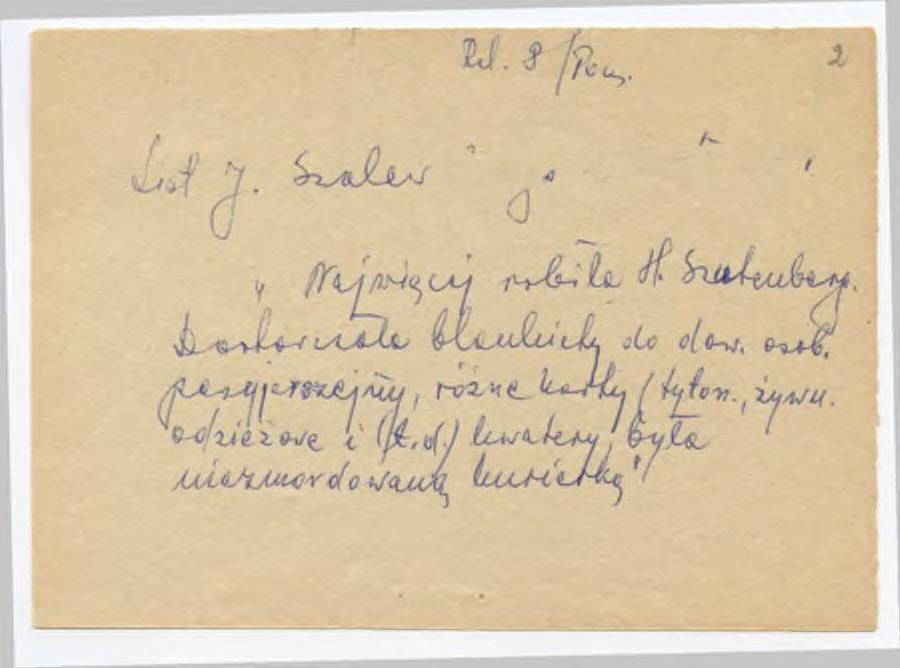 Rel. 8/Pom. 2
List J. Szalew
„Najwięcej robiła H. Szatenberg.
Dostarczała blankiety do dow. osob.
różne karty (tyton., żywn.
odzieżowe i t.d.) kwatery, była
niezmordowaną kurierką"